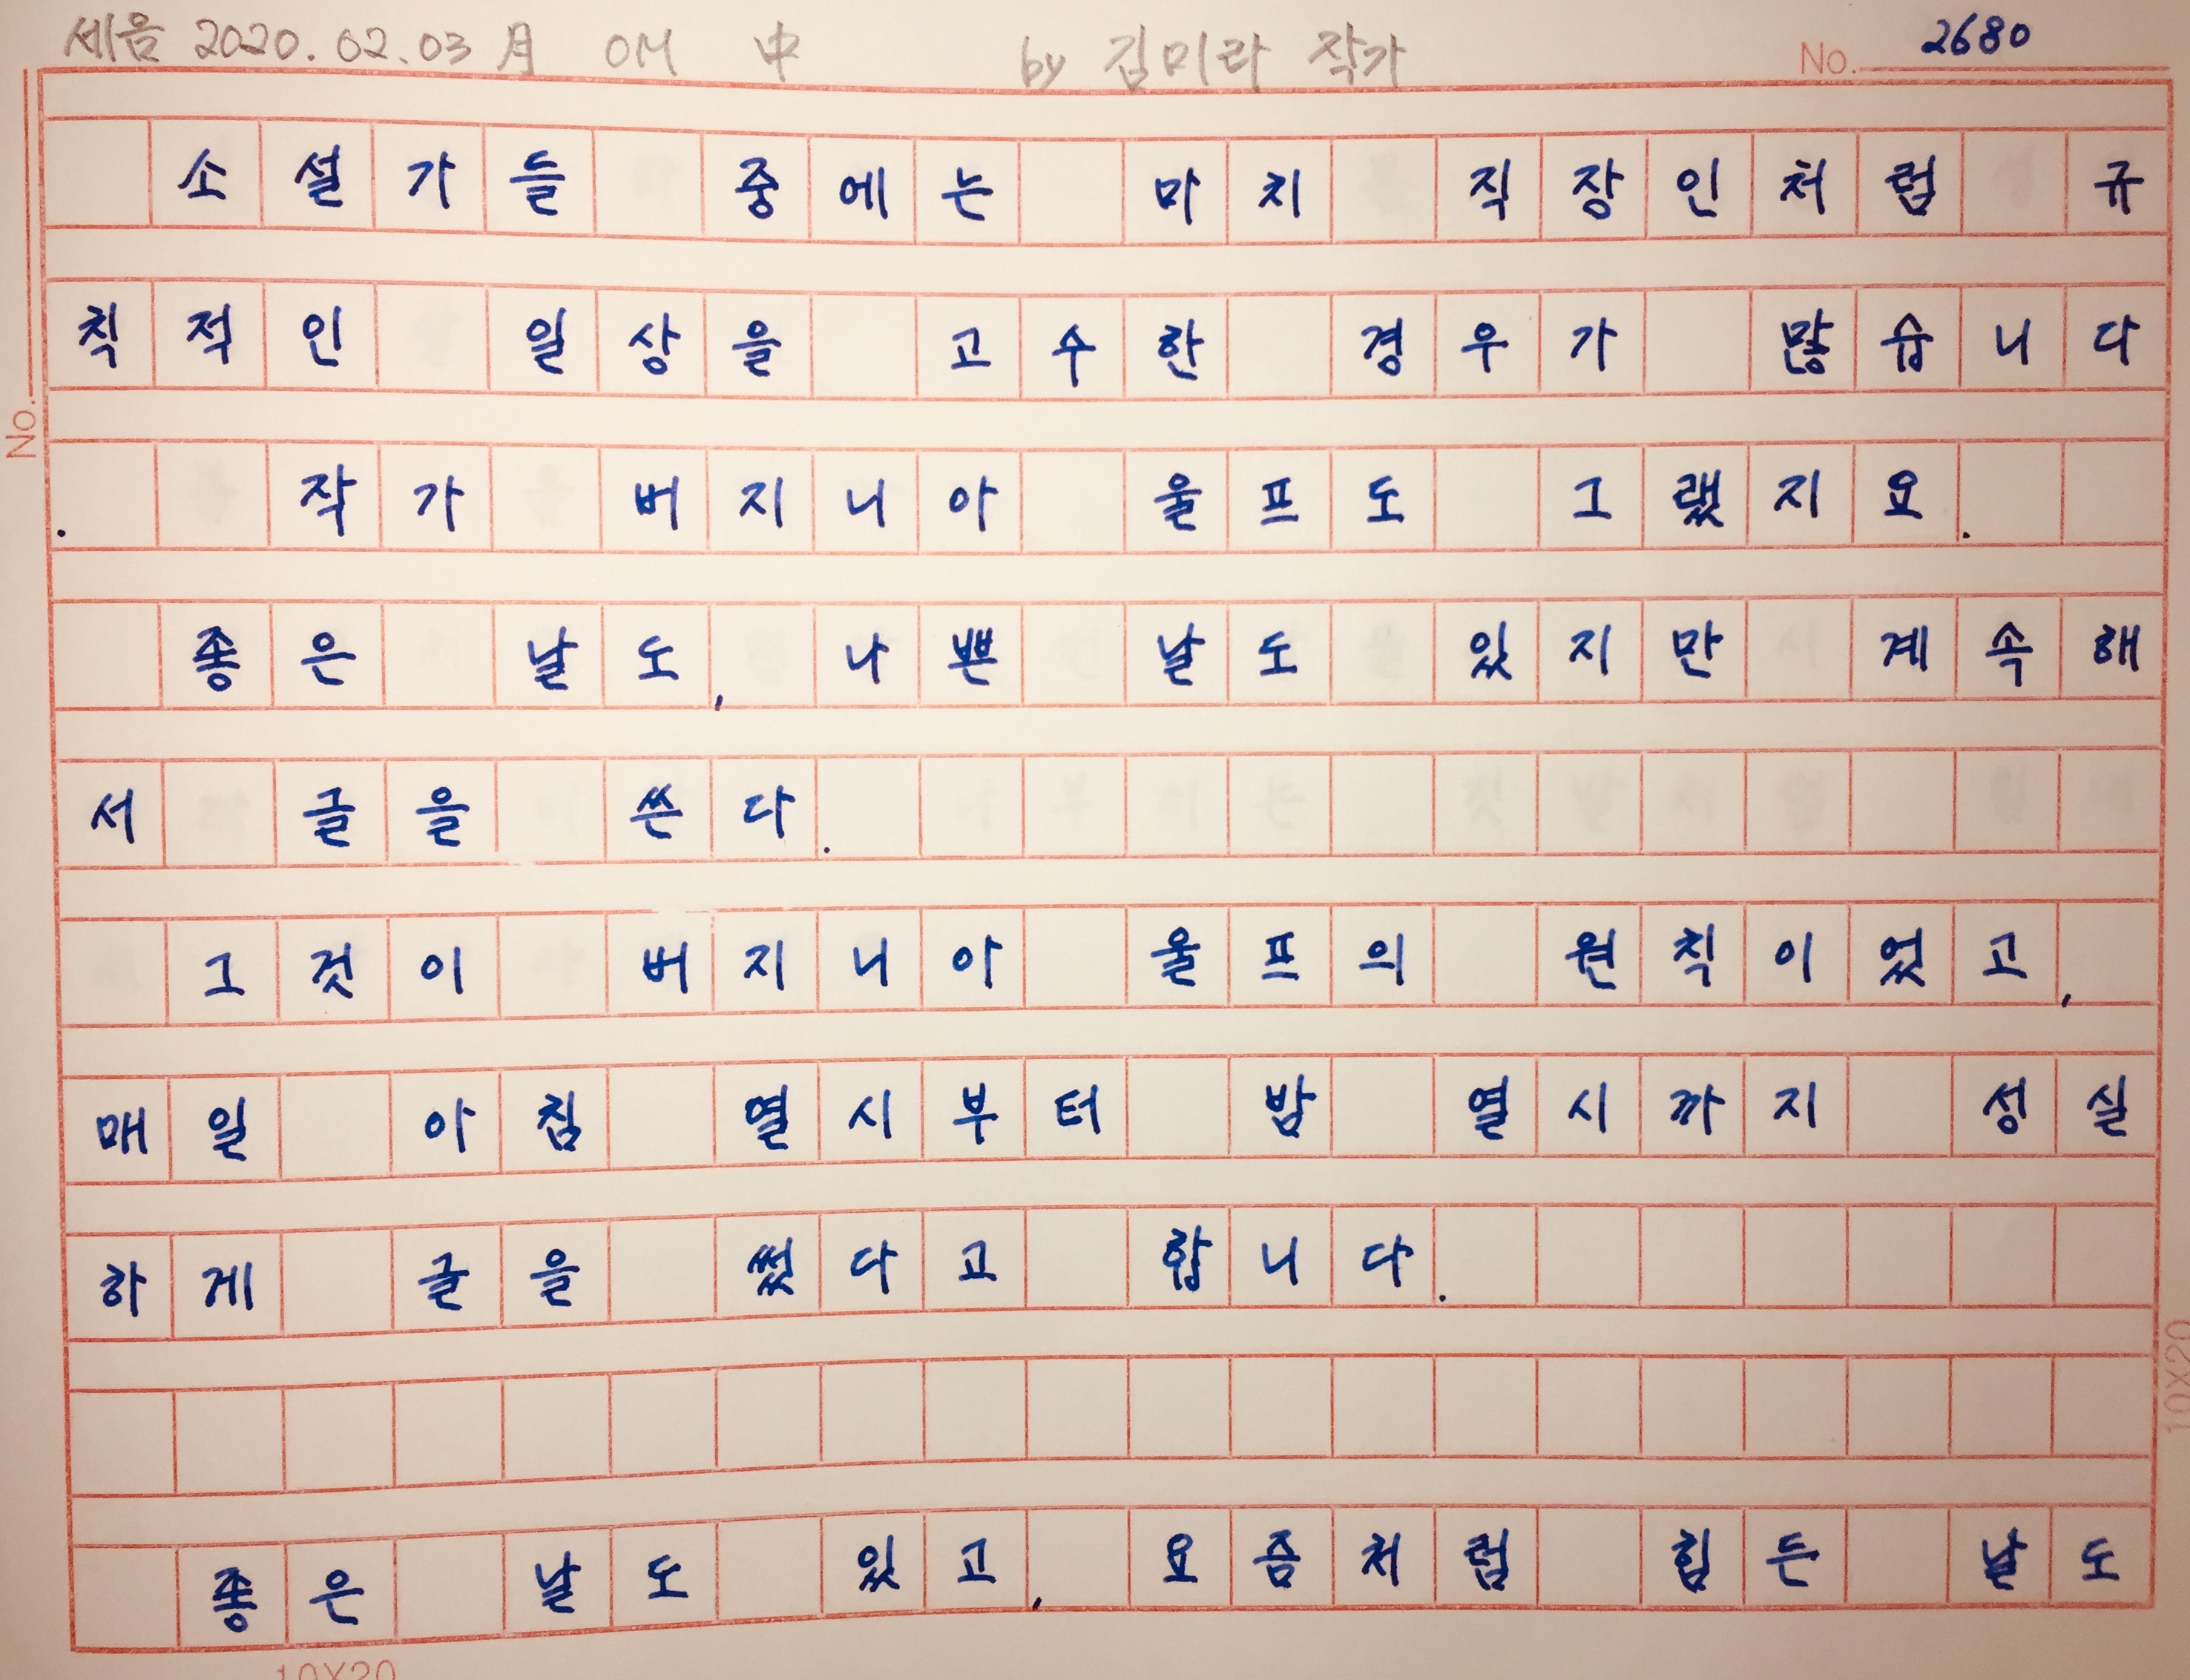 세음 2020.02.03 月 OM 中 by 김미라 작가 No. 2680
소설가들 중에는 마치 직장인처럼 규
칙적인 일상을 고수한 경우가 많습니다
. 작가 버지니아 울프도 그랬지요.
No.
좋은 날도, 나쁜 날도 있지만 계속해
서 글을 쓴다.
그것이 버지니아 울프의 원칙이었고,
매일 아침 열시부터 밤 열시까지 성실
하게 글을 썼다고 합니다.
10X20
좋은 날도 있고, 요즘처럼 힘든 날도
10X20